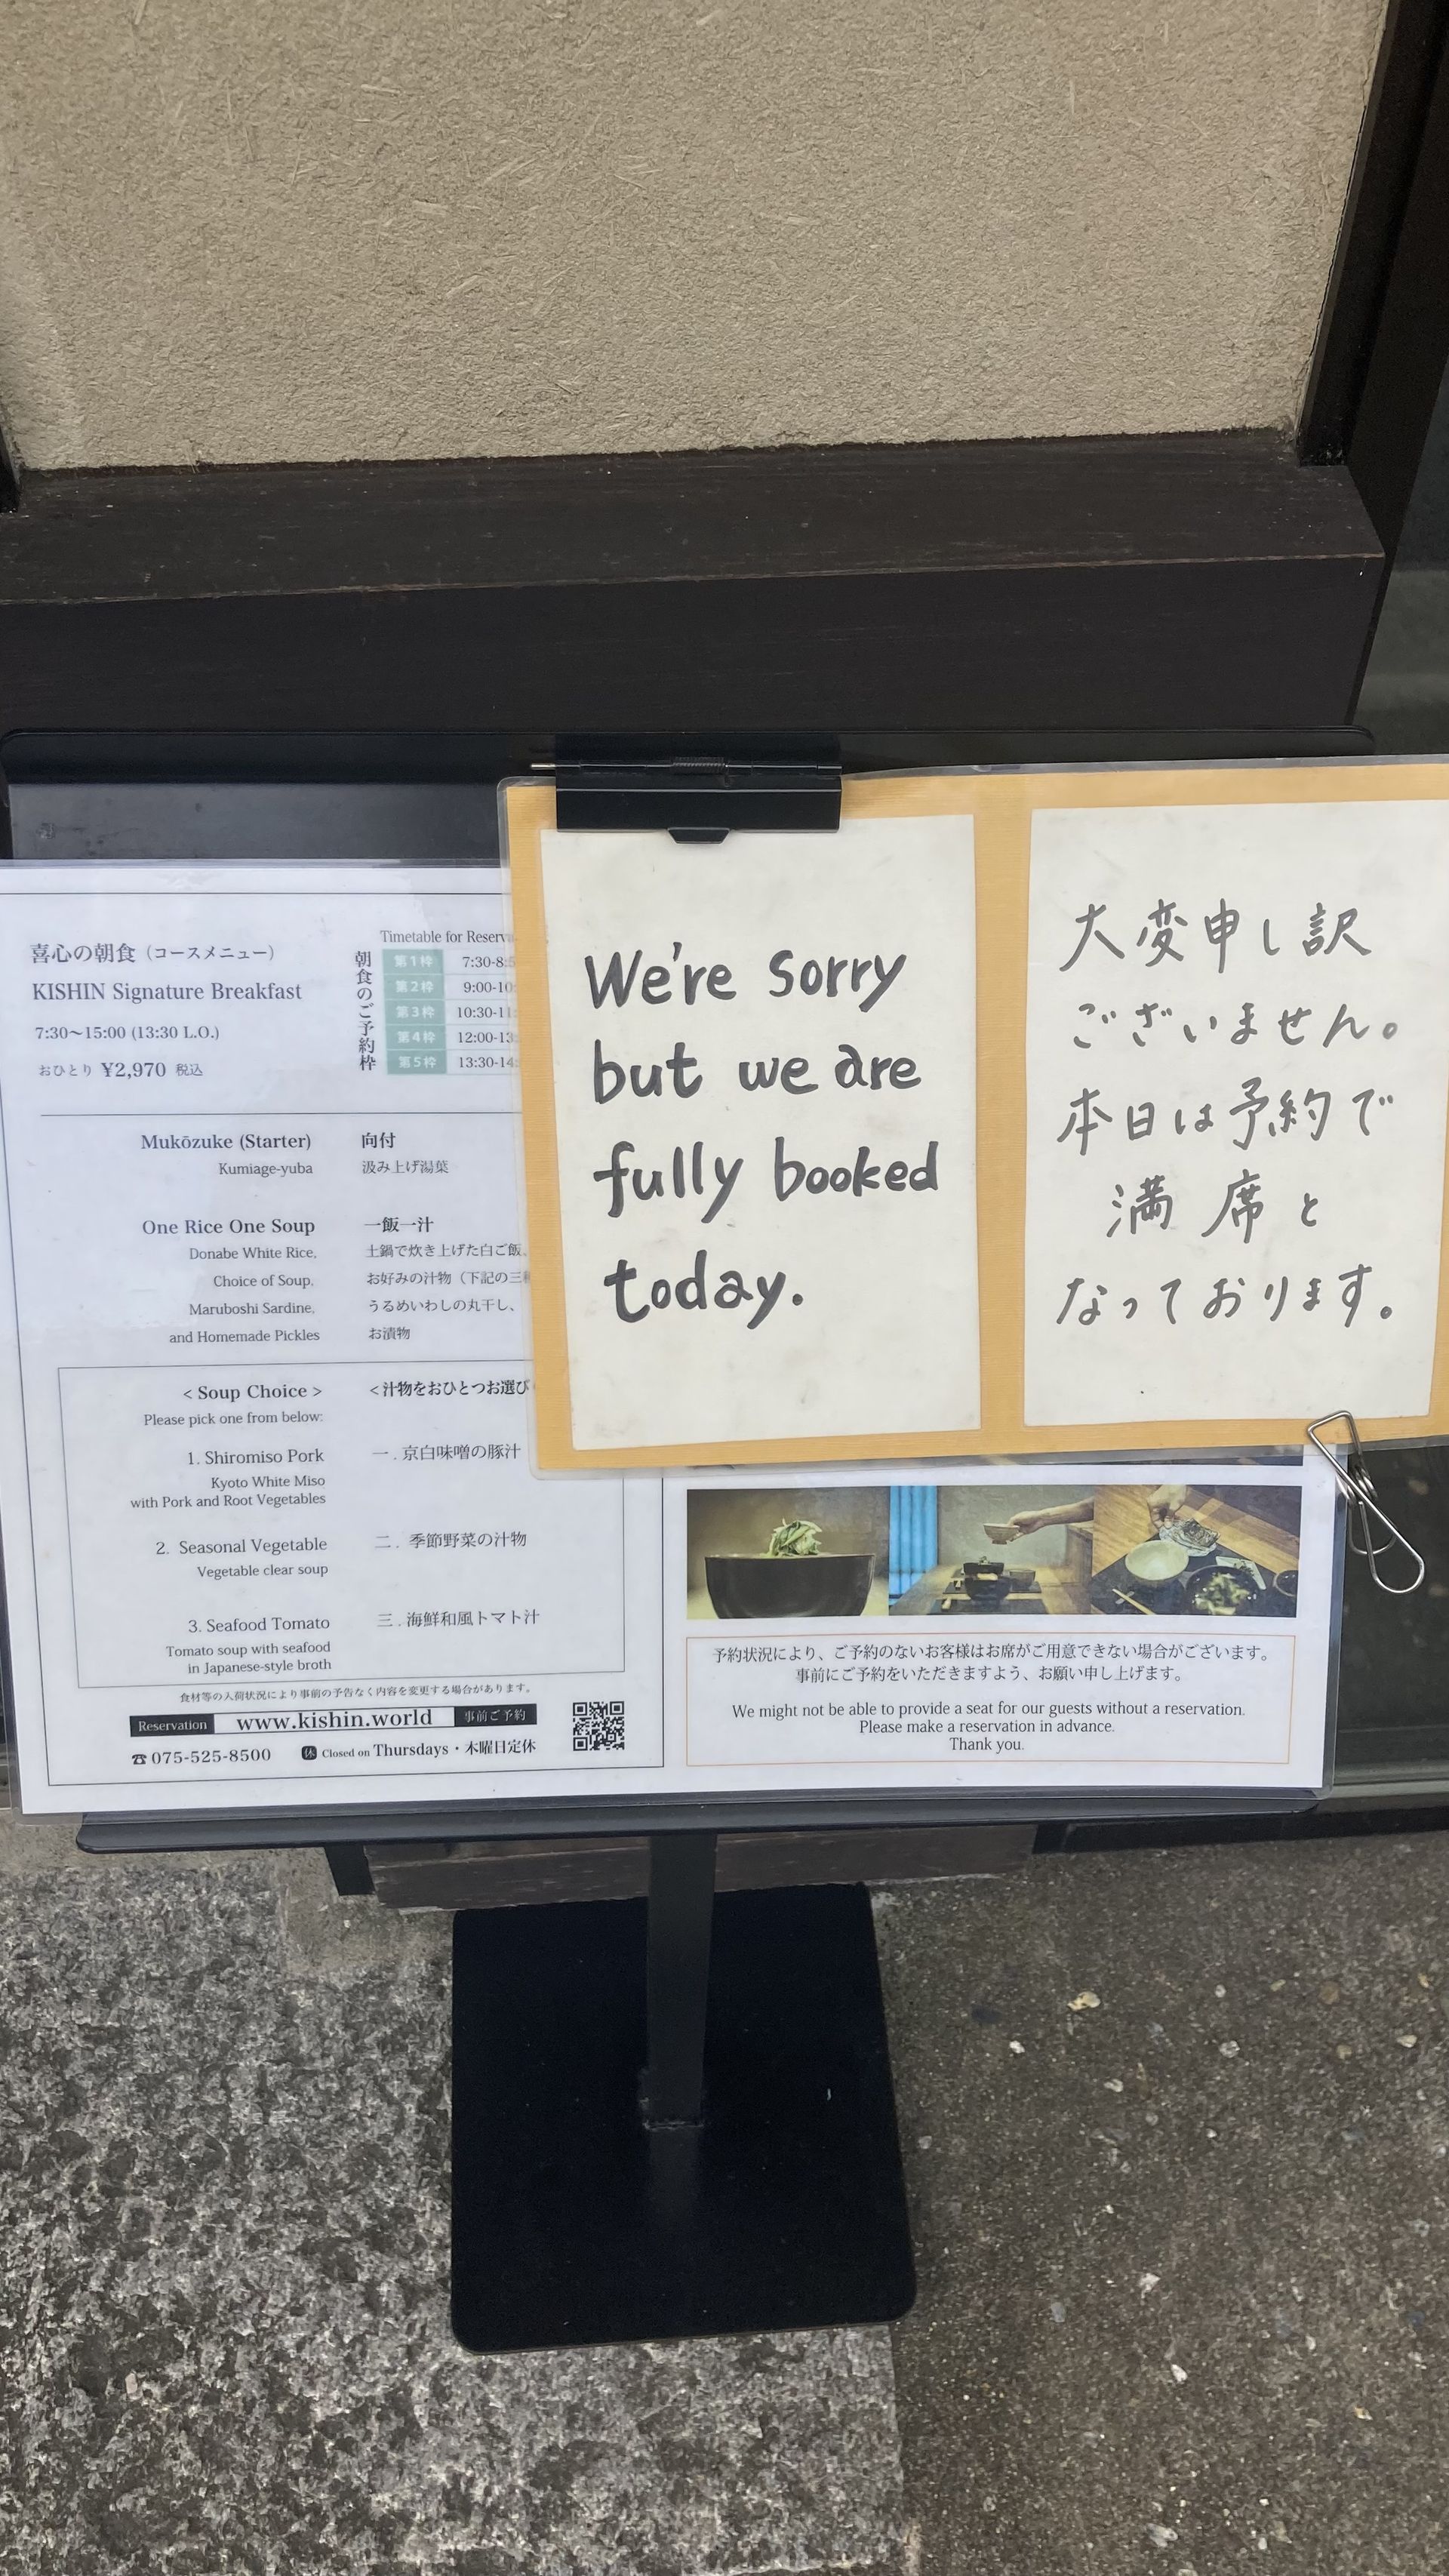 喜心の朝食（コースメニュー）
KISHIN Signature Breakfast
7:30〜15:00 (13:30 L.O.)
おひとり ¥2,970 税込
Timetable for
朝食のご予約枠
第1枠 7:30-
第2枠 9:00-
第3枠 10:30-
第4枠 12:00-
第5枠 13:30-
Mukōzuke (Starter) 向付
Kumiage-yuba 汲み上げ湯葉
One Rice One Soup 一飯一汁
Donabe White Rice, 土鍋で炊き上げた白ご飯、
Choice of Soup, お好みの汁物（下記の三
Maruboshi Sardine, うるめいわしの丸干し、
and Homemade Pickles お漬物
< Soup Choice > <汁物をおひとつお選び
Please pick one from below:
1. Shiromiso Pork 一 . 京白味噌の豚汁
Kyoto White Miso
with Pork and Root Vegetables
2. Seasonal Vegetable 二 . 季節野菜の汁物
Vegetable clear soup
3. Seafood Tomato 三 . 海鮮和風トマト汁
Tomato soup with seafood
in Japanese-style broth
食材等の入荷状況により事前の予告なく内容を変更する場合があります。
Reservation www.kishin.world 事前ご予約
☎075-525-8500 休 Closed on Thursdays・木曜日定休
We're sorry
but we are
fully booked
today.
大変申し訳
ございません。
本日は予約で
満席と
なっております。
予約状況により、ご予約のないお客様はお席がご用意できない場合がございます。
事前にご予約をいただきますよう、お願い申し上げます。
We might not be able to provide a seat for our guests without a reservation.
Please make a reservation in advance.
Thank you.